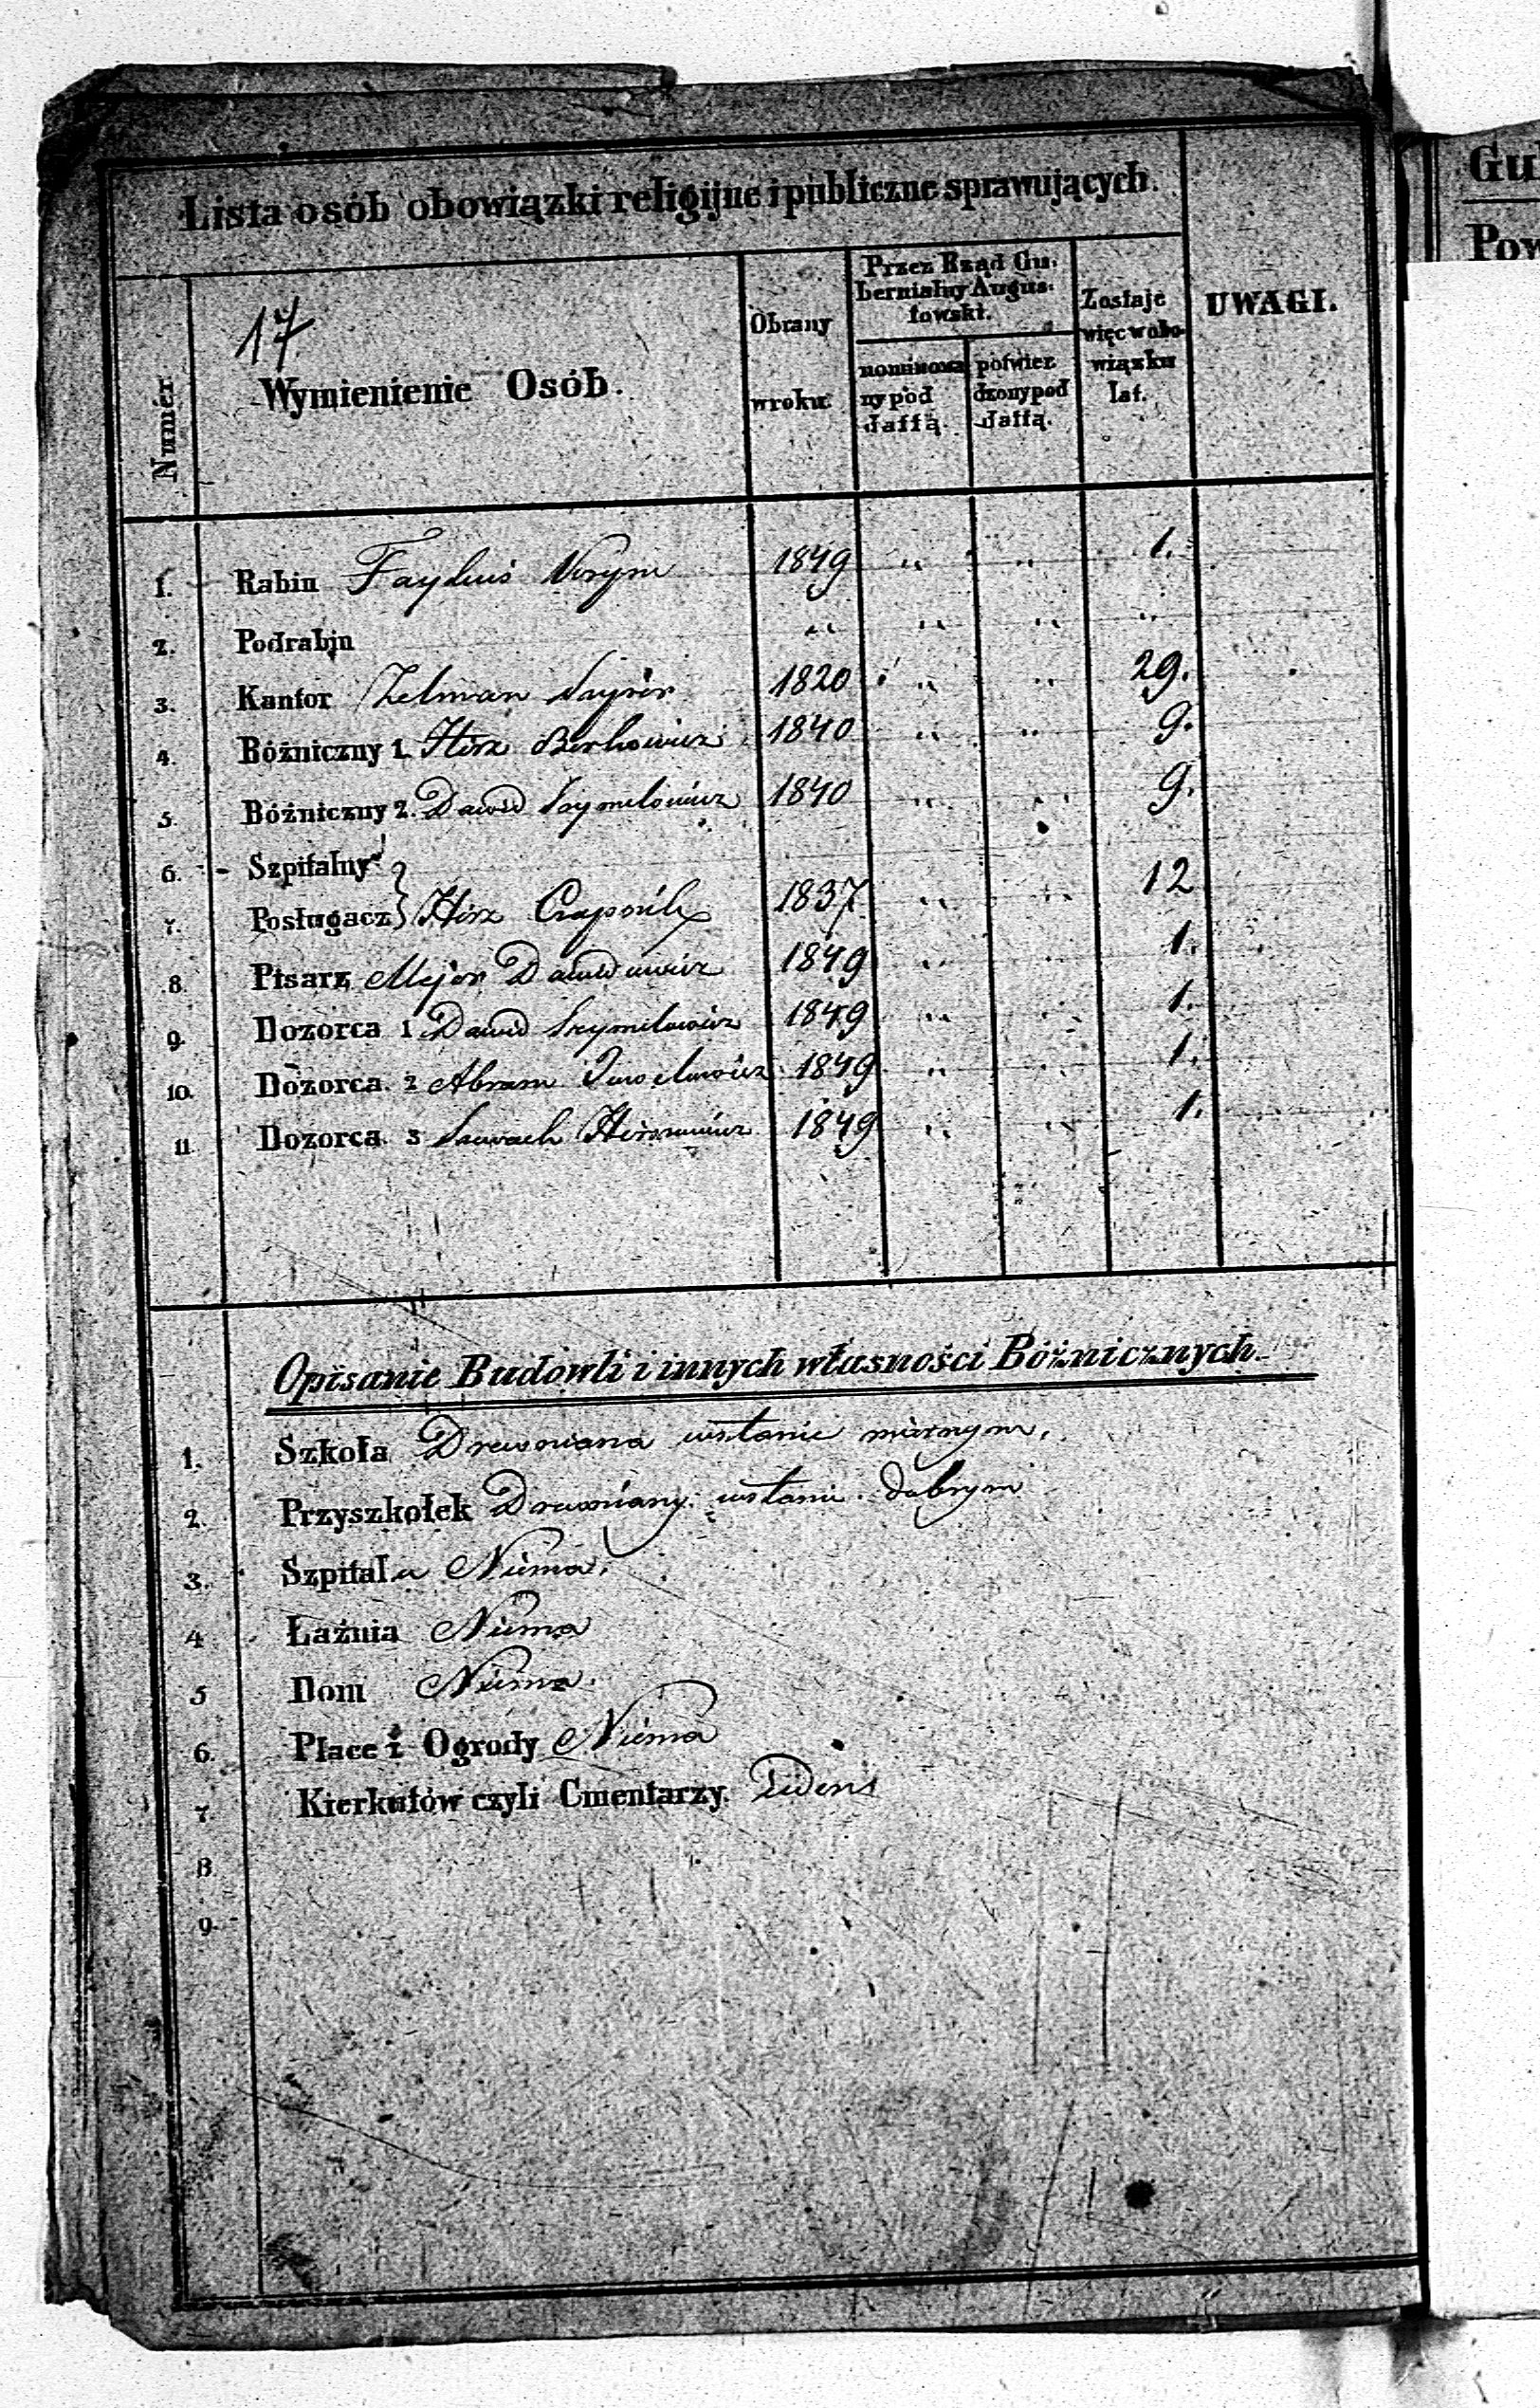 Lista osób obowiązki religijne i publiczne sprawujących.
Numer
17
Wymienienie Osób.
Obrany
w roku.
Przez Rząd Gu.
bernialny Augus.
towski.
nominowa
ny pod
dattą.
potwier
dzony pod
dattą.
Zostaje
więc w obo-
wiązku
lat.
UWAGI.
1. Rabin 1849 „ „ 1.
2. Podrabin „ „ „ „
3. Kantor Zelman 1820 „ „ 29.
4. Bóżniczny 1. Hirz Berkowicz 1840 „ „ 9.
5. Bóżniczny 2. Dawid Szymelowicz 1840 „ „ 9.
6. Szpitalny
7. Posługacz } Hirz Czapnik 1837 „ „ 12
8. Pisarz Mejer Dawidowicz 1849 „ „ 1.
9. Dozorca 1 Dawid Szymelowicz 1849 „ „ 1.
10. Dozorca 2 Abram 1849 „ „ 1.
11. Dozorca 3 1849 „ „ 1.
Opisanie Budowli i innych własności Bóżnicznych.
1. Szkoła Drewniana w stanie miernym.
2. Przyszkołek Drewniany w stanie dobrym
3. Szpital Niema.
4 Łaźnia Niema
5 Dom Niema.
6. Place i Ogrody Niema
7. Kierkutów czyli Cmentarzy. Jeden
8.
9.
Gu
Pow